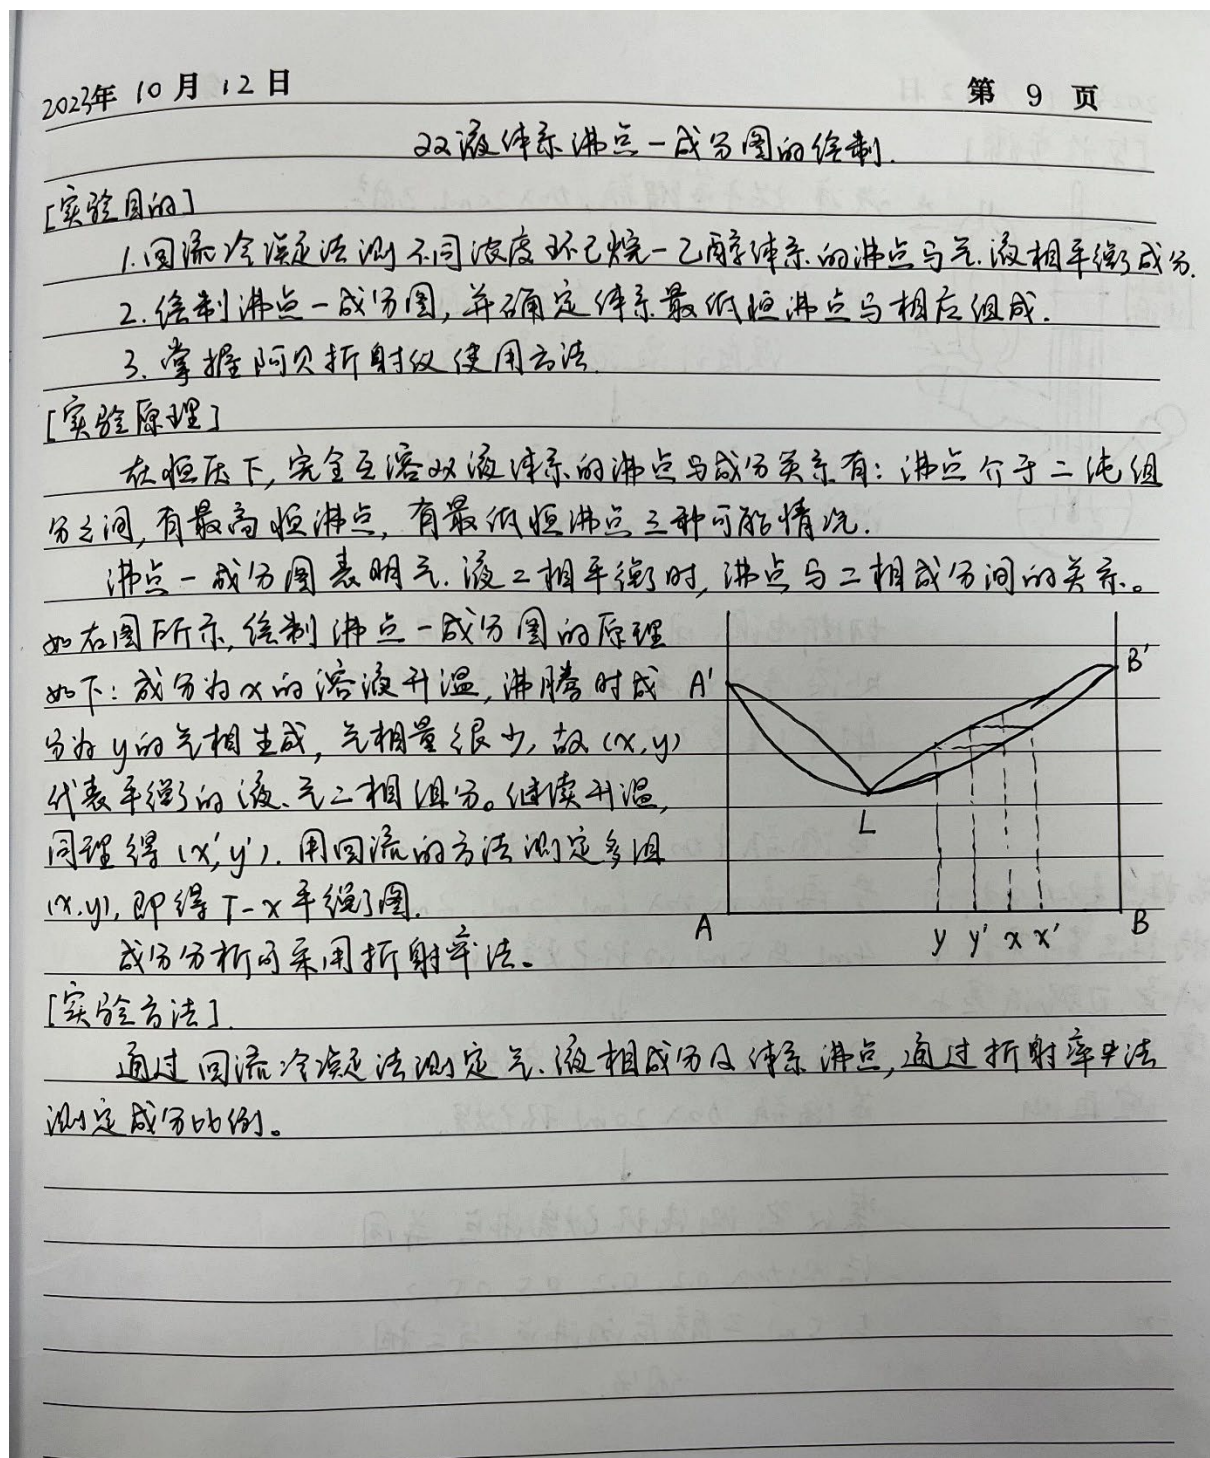 2023年 10月 12日
第 9 页
双液体系沸点-成分图的绘制.
[实验目的]
1.回流冷凝法测不同浓度环己烷-乙醇体系的沸点与气.液相平衡成分.
2.绘制沸点-成分图,并确定体系最低恒沸点与相应组成.
3.掌握阿贝折射仪使用方法.
[实验原理]
在恒压下,完全互溶双液体系的沸点与成分关系有:沸点介于二纯组
分之间,有最高恒沸点,有最低恒沸点三种可能情况.
沸点-成分图表明气.液二相平衡时,沸点与二相成分间的关系。
如右图所示,绘制沸点-成分图的原理
如下:成分为x的溶液升温,沸腾时成
分为y的气相生成,气相量很少,故(x,y)
代表平衡的液、气二相组分。继续升温,
同理得(x',y').用回流的方法测定多组
(x.y),即得T-x平衡图.
成分分析可采用折射率法。
A'
B'
L
A
y y' x x'
B
[实验方法].
通过回流冷凝法测定气.液相成分及体系沸点,通过折射率法
测定成分比例。